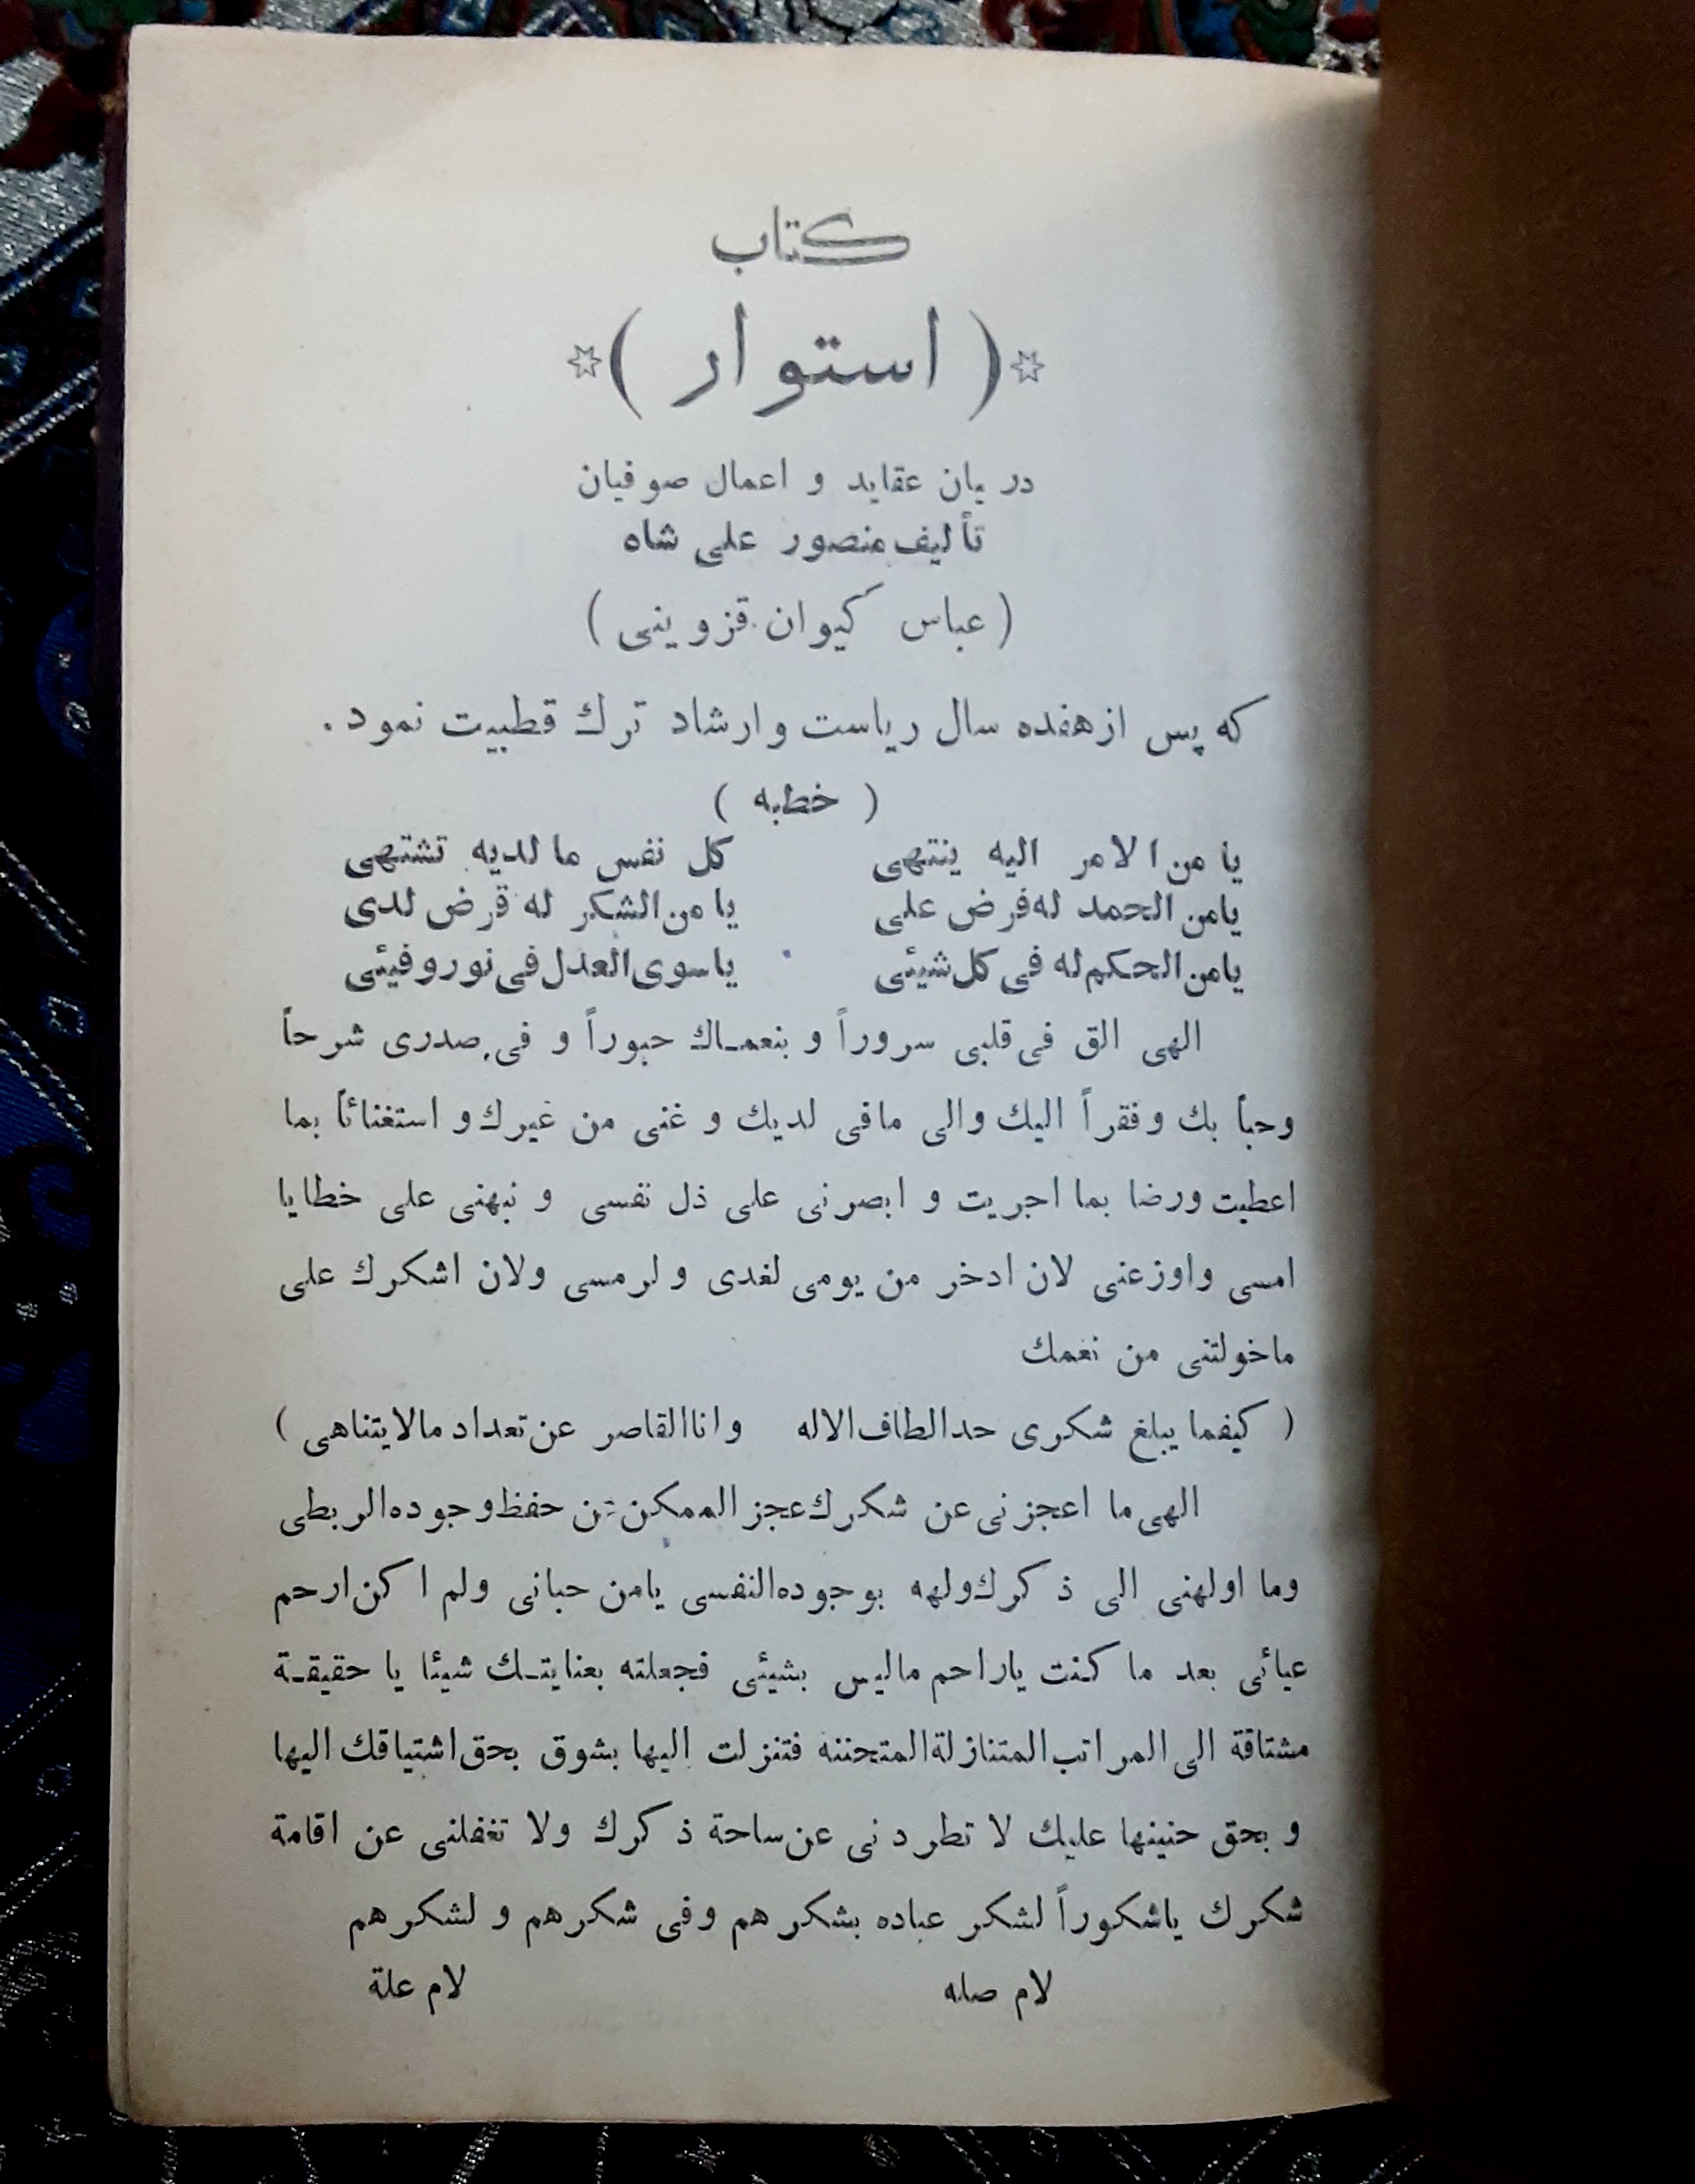 کتاب
( استوار )
در بیان عقاید و اعمال صوفیان
تألیف منصور علی شاه
( عباس کیوان قزوینی )
که پس از هفده سال ریاست و ارشاد ترک قطبیت نمود .
( خطبه )
یا من الامر الیه ینتهی کل نفس ما لدیه تشتهی
یا من الحمد له فرض علی یا من الشکر له قرض لدی
یا من الحکم له فی کل شیئی یا سوی العدل فی نور و فیئی
الهی الق فی قلبی سروراً و بنعمـاك حبوراً و فی صدری شرحاً
وحباً بك وفقراً الیك والی مافی لدیك و غنی من غیرك و استغنائاً بما
اعطیت ورضا بما اجریت و ابصرنی علی ذل نفسی و نبهنی علی خطایا
امسی واوزعنی لان ادخر من یومی لغدی و لرمسی ولان اشکرك علی
ماخولتنی من نعمك
( کیفما یبلغ شکری حد الطاف الاله و انا القاصر عن تعداد مالایتناهی )
الهی ما اعجزنی عن شکرك عجز الممکن عن حفظ وجوده الربطی
وما اولهنی الی ذکرك وله بوجوده النفسی یامن حبانی ولم اکن ارحم
عیائی بعد ما کنت یاراحم مالیس بشیئی فجعلته بعنایتـك شیئا یا حقیقـة
مشتاقة الی المراتب المتنازلة المتحننه فتنزلت الیها بشوق بحق اشتیاقك الیها
و بحق حنینها علیك لا تطردنی عن ساحة ذکرك ولا تغفلنی عن اقامة
شکرك یاشکوراً لشکر عباده بشکرهم وفی شکرهم و لشکرهم
لام صله لام علة